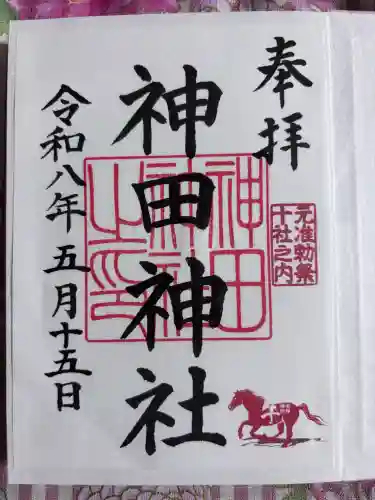 奉拝
元准勅祭
十社之内
神田神社
神田
神社
之印
令和八年五月十五日